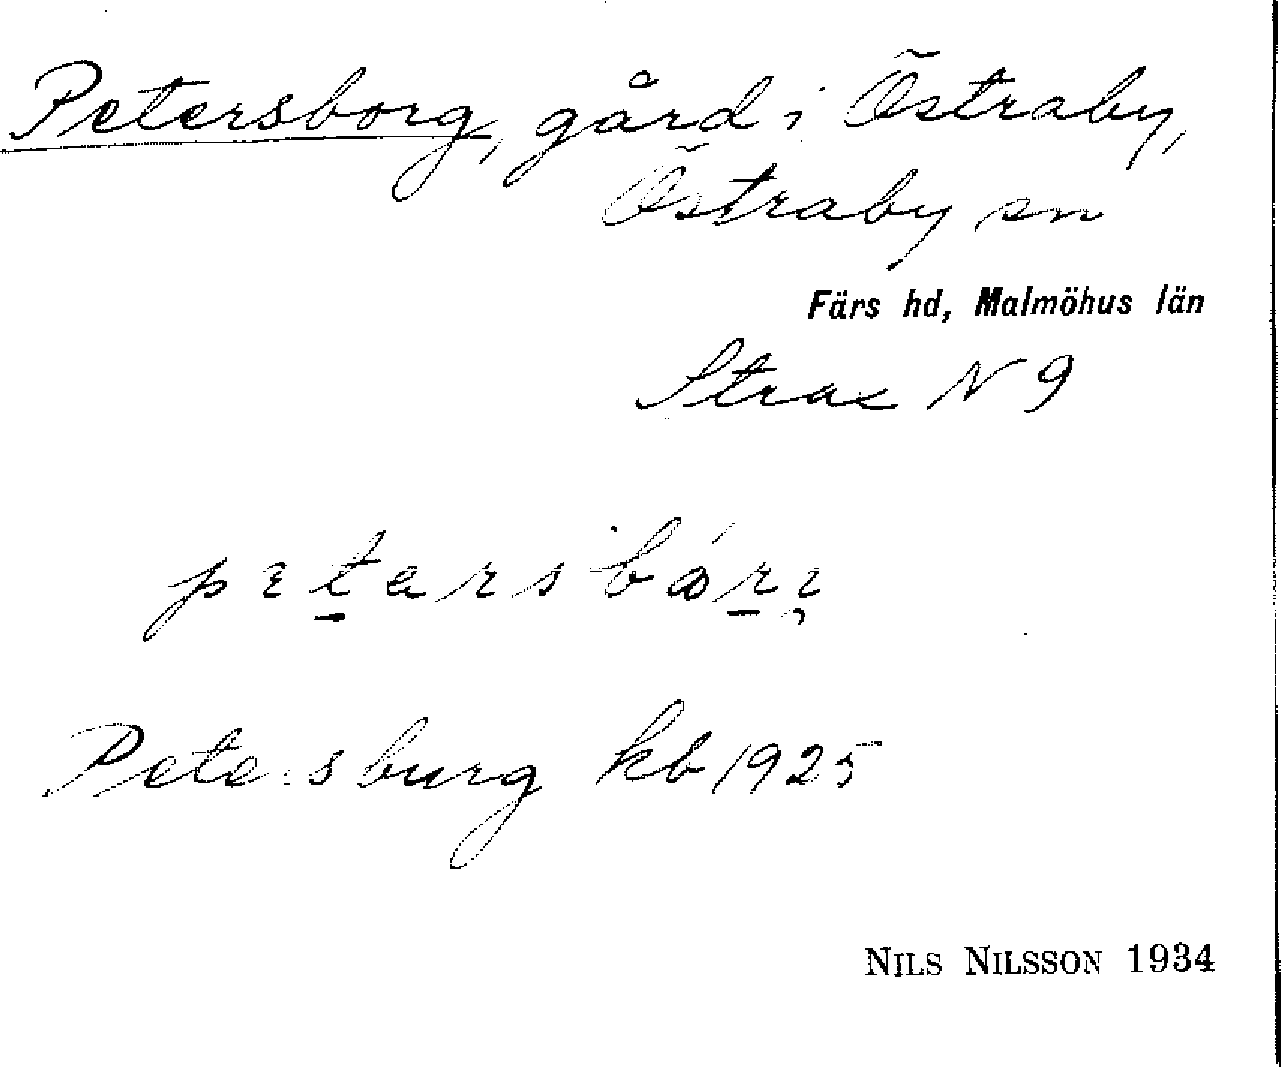 Petersborg, gård i Östraby,
Östraby sn
Färs hd, Malmöhus län
N 9
Petersburg kb 1925
NILS NILSSON 1934